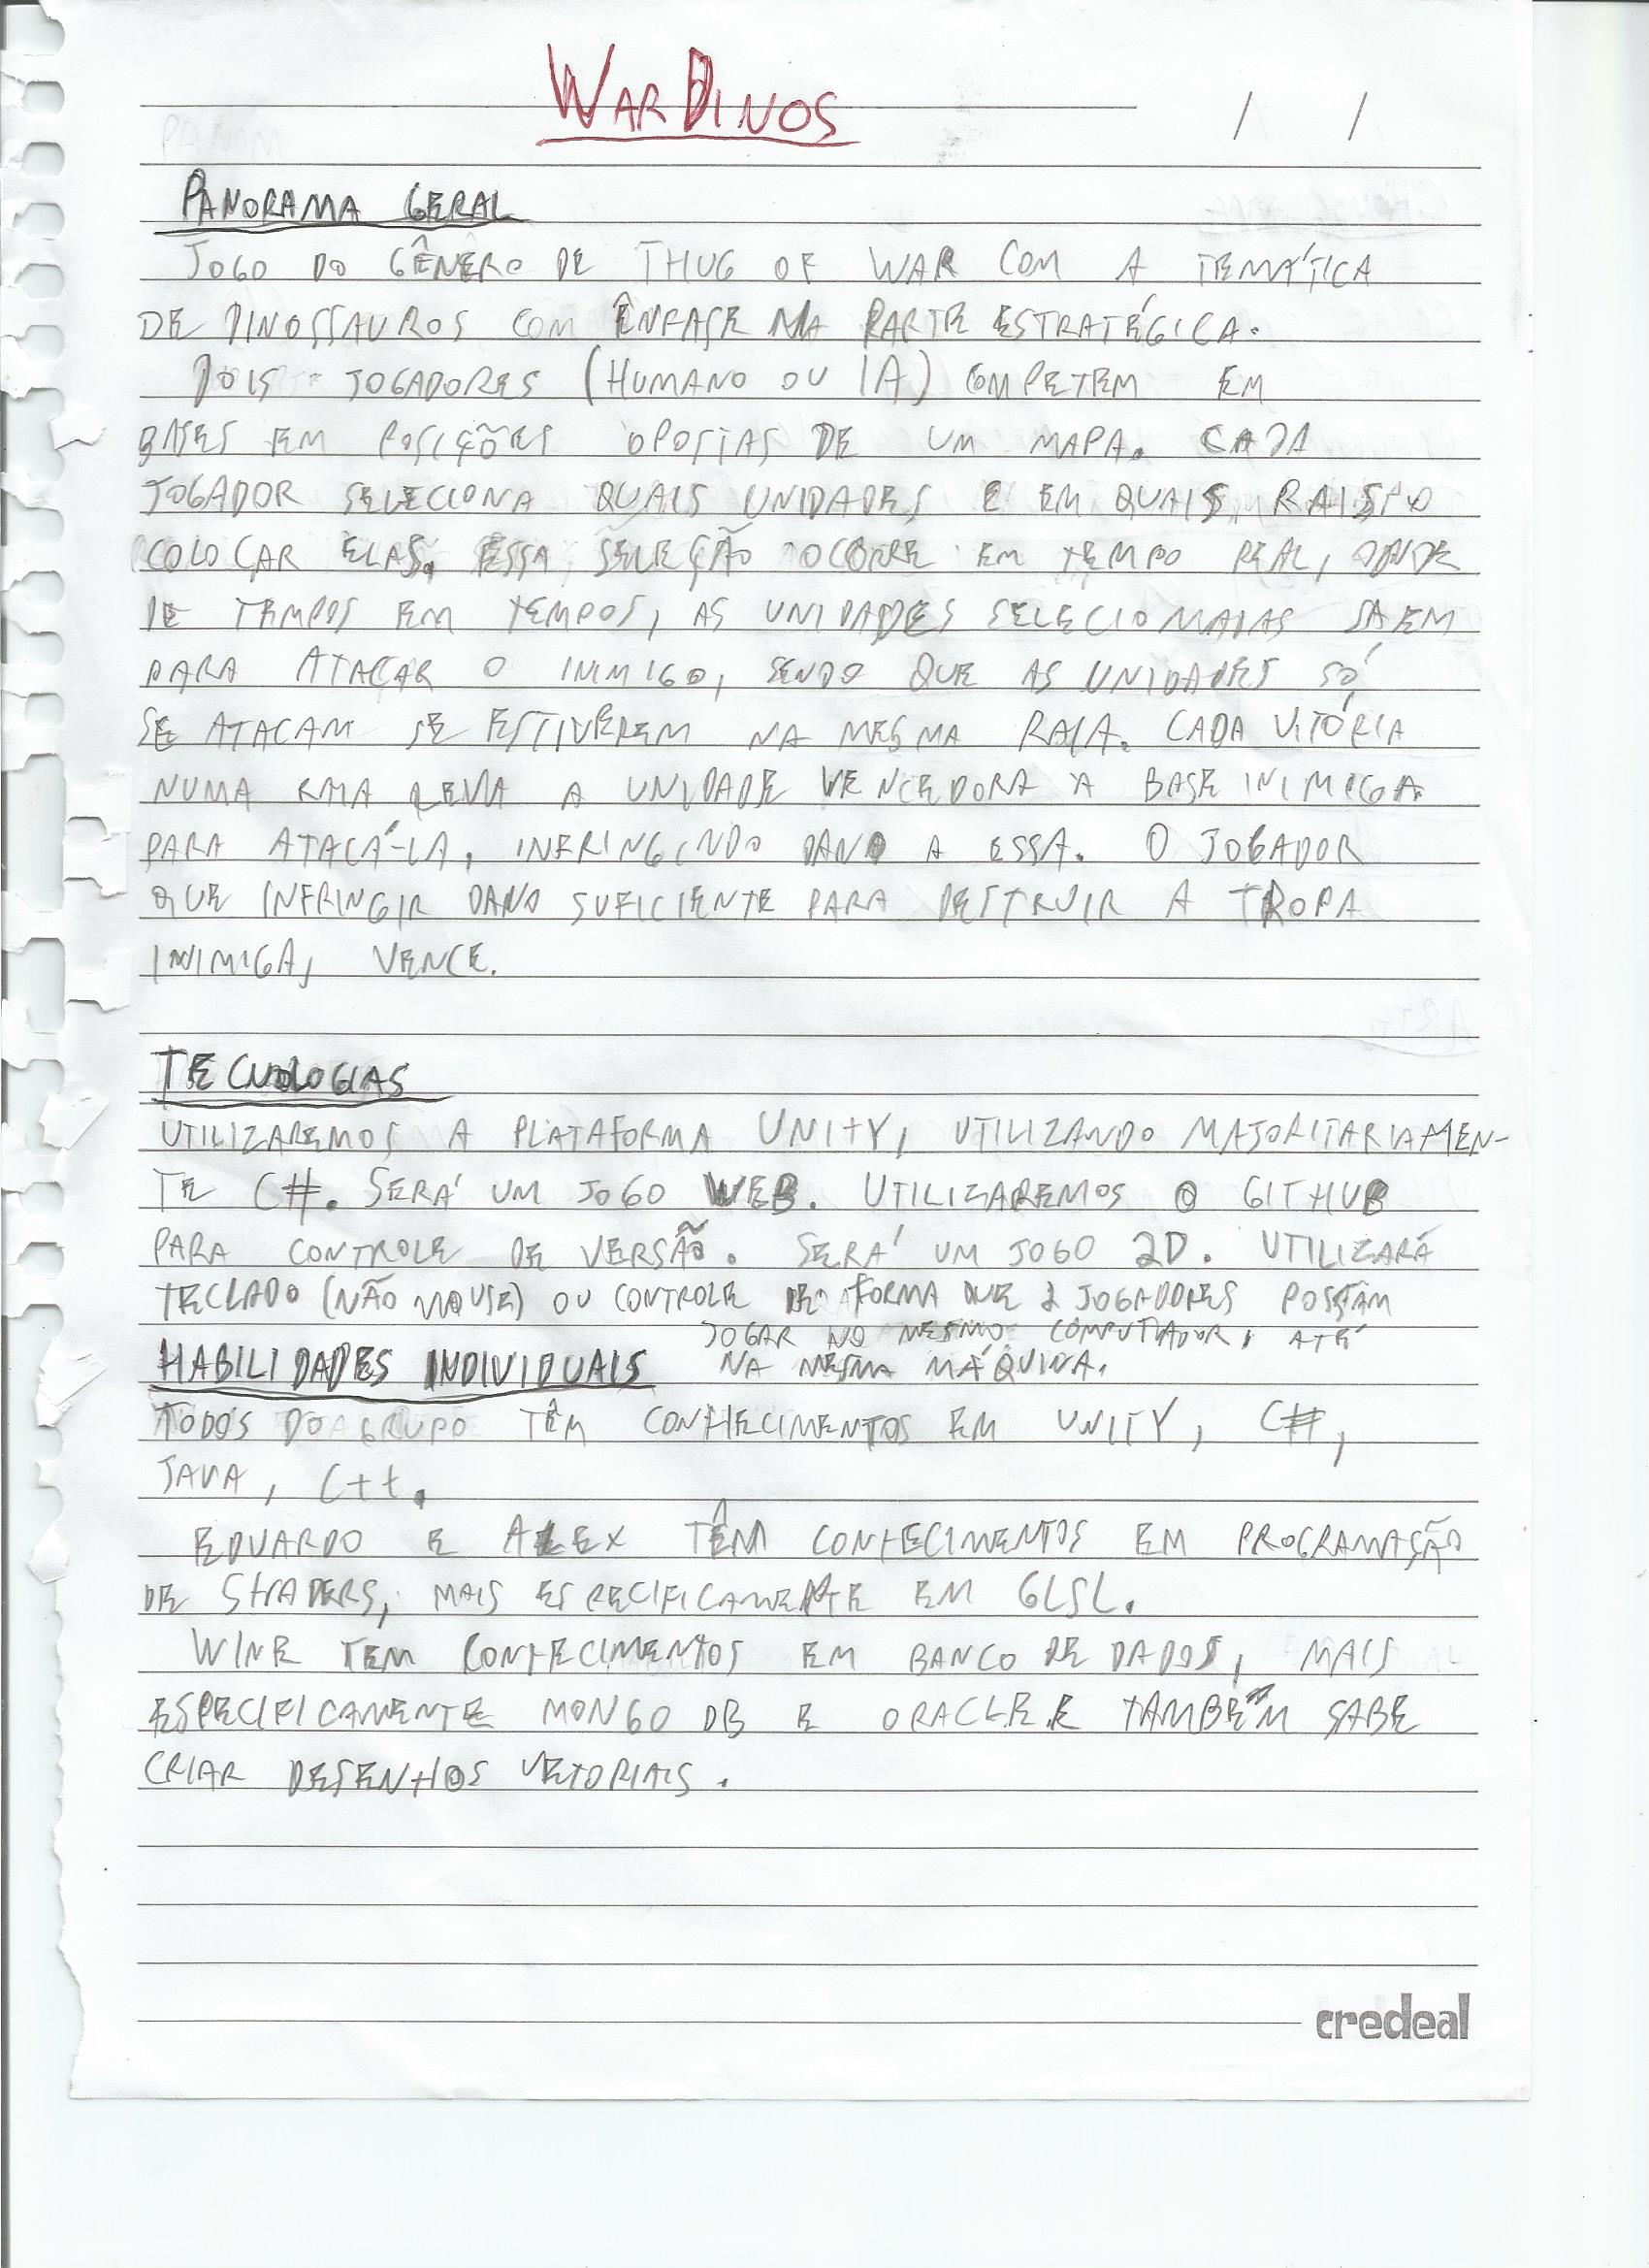 WARDINOS
/ /
PANORAMA GERAL
JOGO DO GÊNERO DE THUG OF WAR COM A TEMÁTICA
DE DINOSSAUROS COM ÊNFASE NA PARTE ESTRATÉGICA.
DOIS JOGADORES (HUMANO OU IA) COMPETEM EM
BASES EM POSIÇÕES OPOSTAS DE UM MAPA. CADA
JOGADOR SELECIONA QUAIS UNIDADES E EM QUAIS
COLOCAR ELAS. ESSA SELEÇÃO OCORRE EM TEMPO REAL, ONDE
DE TEMPOS EM TEMPOS, AS UNIDADES SELECIONADAS SAEM
PARA ATACAR O INIMIGO, SENDO QUE AS UNIDADES SÓ
SE ATACAM SE ESTIVEREM NA MESMA RAIA. CADA VITÓRIA
NUMA RAIA LEVA A UNIDADE VENCEDORA A BASE INIMIGA
PARA ATACÁ-LA, INFRINGINDO DANO A ESSA. O JOGADOR
QUE INFRINGIR DANO SUFICIENTE PARA DESTRUIR A TROPA
INIMIGA, VENCE.
TECNOLOGIAS
UTILIZAREMOS A PLATAFORMA UNITY, UTILIZANDO MAJORITARIAMEN-
TE C#. SERÁ UM JOGO WEB. UTILIZAREMOS O GITHUB
PARA CONTROLE DE VERSÃO. SERÁ UM JOGO 2D. UTILIZARÁ
TECLADO (NÃO MOUSE) OU CONTROLE DE FORMA QUE 2 JOGADORES POSSAM
JOGAR NO MESMO COMPUTADOR, ATÉ
NA MESMA MÁQUINA.
HABILIDADES INDIVIDUAIS
TODOS DO GRUPO TÊM CONHECIMENTOS EM UNITY, C#,
JAVA, C++.
EDUARDO E ALEX TÊM CONHECIMENTOS EM PROGRAMAÇÃO
DE SHADERS, MAIS ESPECIFICAMENTE EM GLSL.
WINE TEM CONHECIMENTOS EM BANCO DE DADOS, MAIS
ESPECIFICAMENTE MONGO DB E ORACLE E TAMBÉM SABE
CRIAR DESENHOS VETORIAIS.
credeal